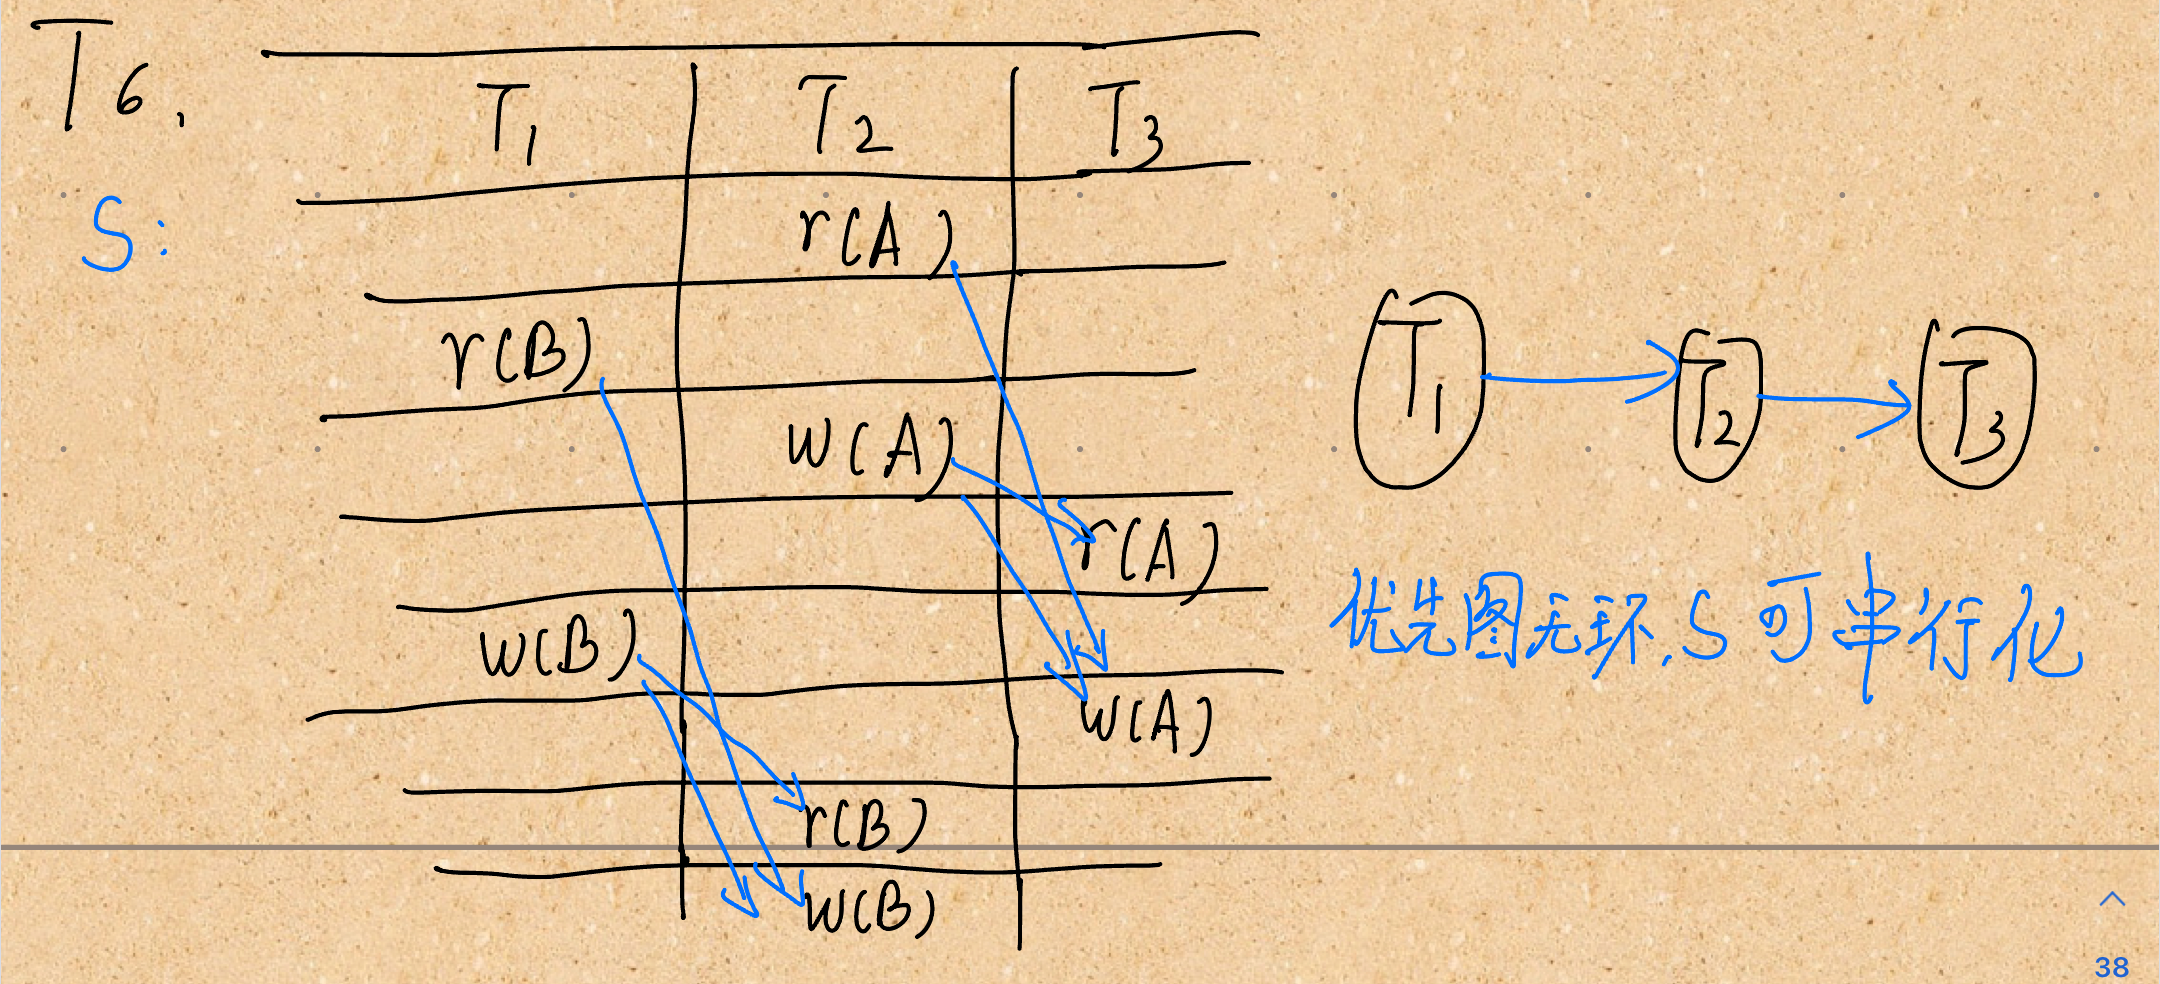 T6.
T1 T2 T3
S:
r(A)
r(B)
W(A)
r(A)
W(B)
W(A)
r(B)
W(B)
T1 T2 T3
优先图无环.S可串行化
38